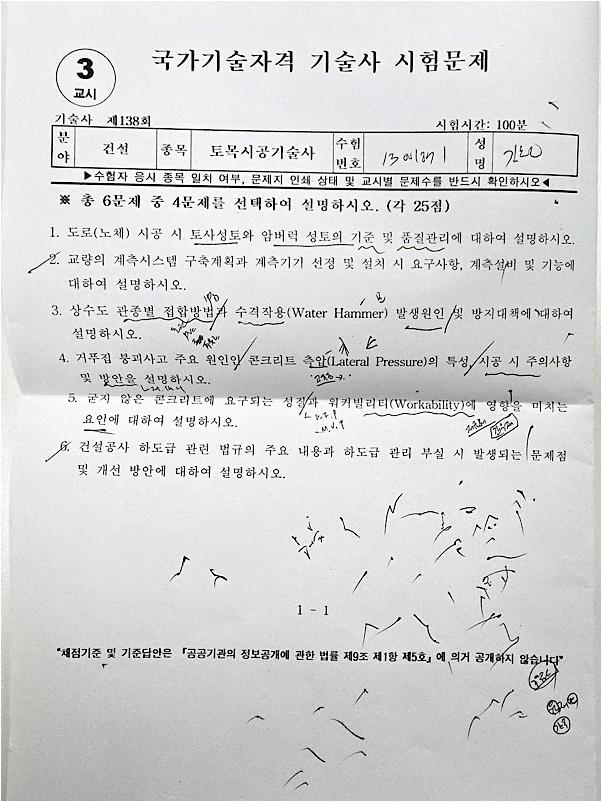 3
교시
국가기술자격 기술사 시험문제
기술사 제138회
시험시간: 100분
분야 건설 종목 토목시공기술사 수험번호 성명
▶수험자 응시 종목 일치 여부, 문제지 인쇄 상태 및 교시별 문제수를 반드시 확인하시오◀
※ 총 6문제 중 4문제를 선택하여 설명하시오. (각 25점)
1. 도로(노체) 시공 시 토사성토와 암버럭 성토의 기준 및 품질관리에 대하여 설명하시오.
2. 교량의 계측시스템 구축계획과 계측기기 선정 및 설치 시 요구사항, 계측설비 및 기능에
대하여 설명하시오.
3. 상수도 관종별 접합방법과 수격작용(Water Hammer) 발생원인 및 방지대책에 대하여
설명하시오.
4. 거푸집 붕괴사고 주요 원인인 콘크리트 측압(Lateral Pressure)의 특성, 시공 시 주의사항
및 방안을 설명하시오.
5. 굳지 않은 콘크리트에 요구되는 성질과 워커빌리티(Workability)에 영향을 미치는
요인에 대하여 설명하시오.
6. 건설공사 하도급 관련 법규의 주요 내용과 하도급 관리 부실 시 발생되는 문제점
및 개선 방안에 대하여 설명하시오.
1 - 1
"채점기준 및 기준답안은 『공공기관의 정보공개에 관한 법률 제9조 제1항 제5호』에 의거 공개하지 않습니다"